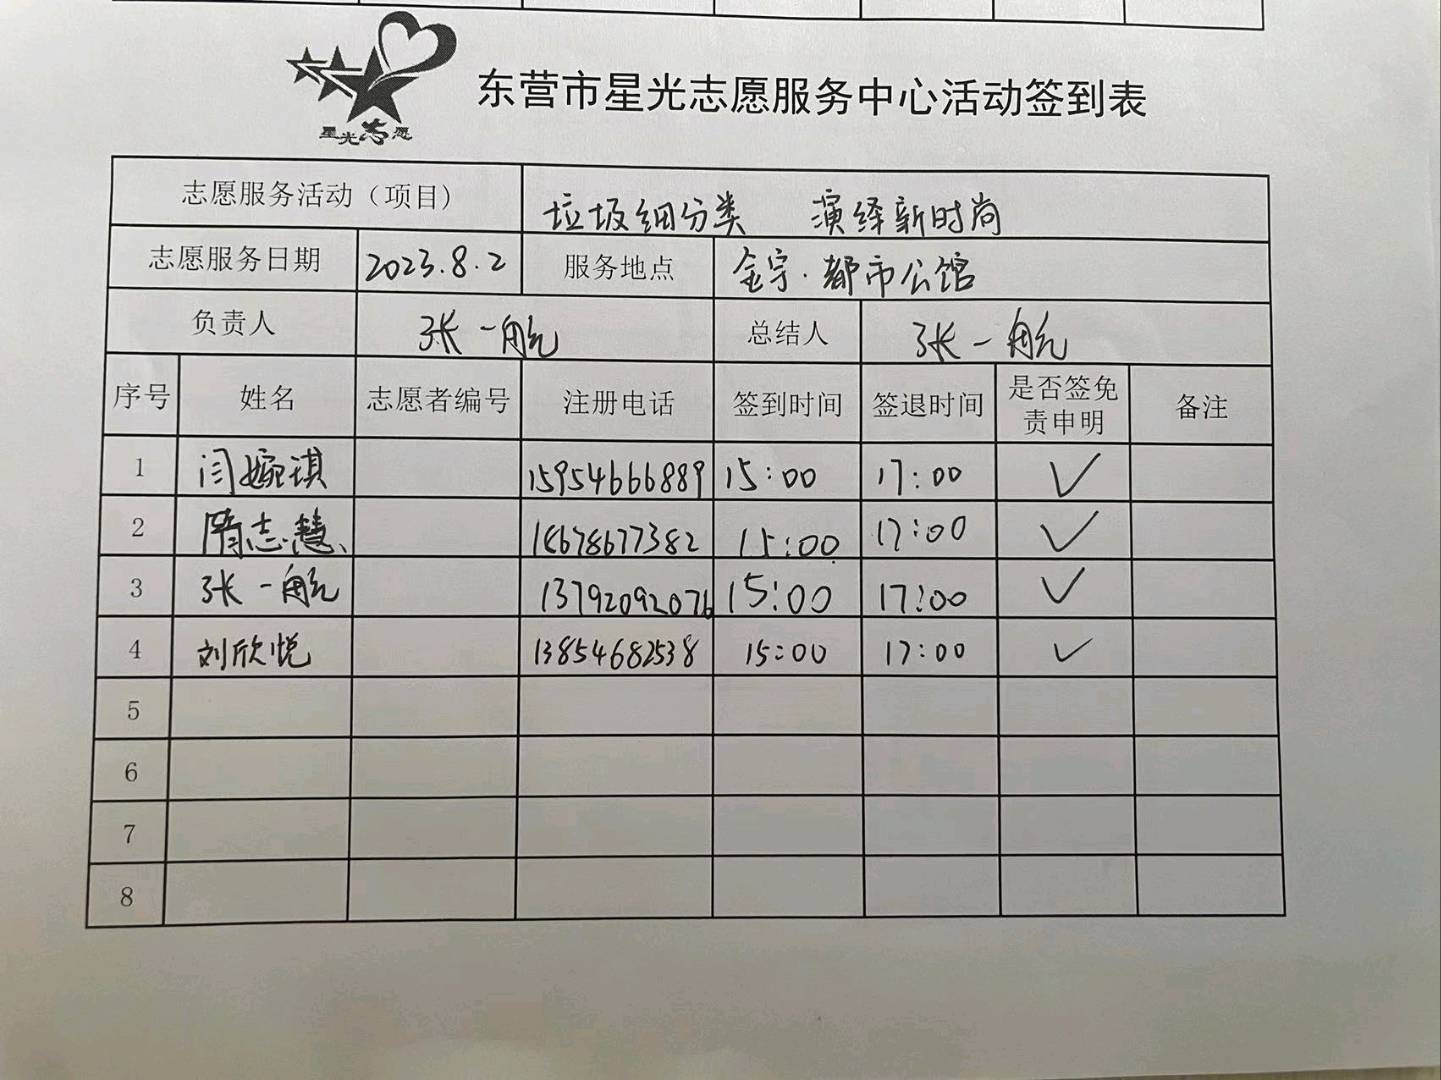 星光志愿
东营市星光志愿服务中心活动签到表
志愿服务活动（项目） 垃圾细分类 演绎新时尚
志愿服务日期 2023.8.2 服务地点 金宇·都市公馆
负责人 张一航 总结人 张一航
序号 姓名 志愿者编号 注册电话 签到时间 签退时间 是否签免责申明 备注
1 闫婉琪 15954666889 15:00 17:00 ✓
2 隋志慧 15:00 17:00 ✓
3 张一航 13792092076 15:00 17:00 ✓
4 刘欣悦 13854682538 15:00 17:00 ✓
5
6
7
8